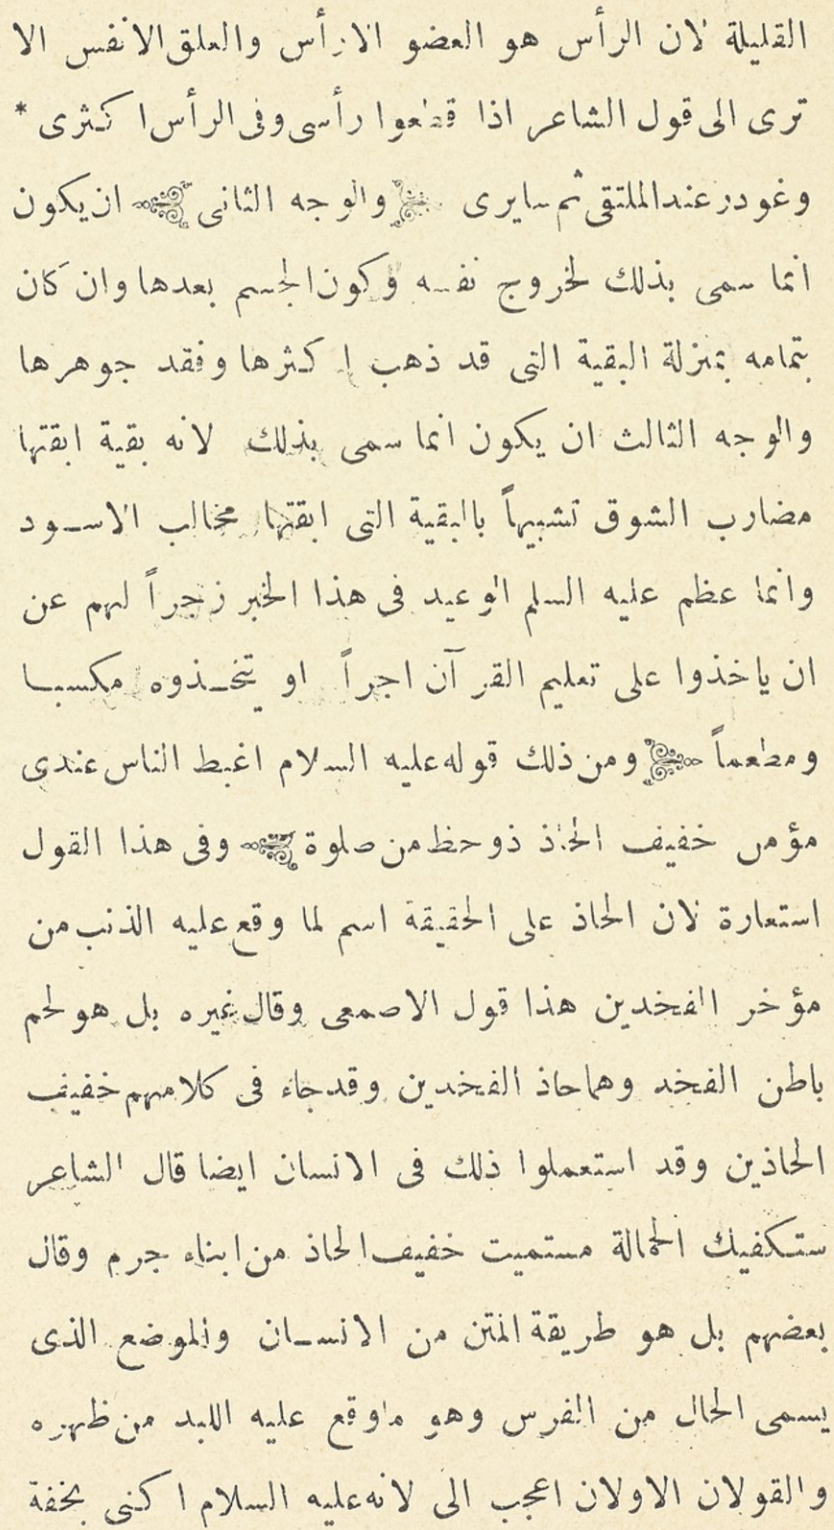 القليلة لان الرأس هو العضو الارأس والعلق الانفس الا
ترى الى قول الشاعر اذا قطعوا رأسى وفى الرأس اكثرى *
وغودر عند الملتقى ثم سايرى والوجه الثانى ان يكون
انما سمى بذلك لخروج نفسه وكون الجسم بعدها وان كان
بتمامه بمنزلة البقية التى قد ذهب اكثرها وفقد جوهرها
والوجه الثالث ان يكون انما سمى بذلك لانه بقية ابقتها
مضارب الشوق تشبيهاً بالبقية التى ابقتها مخالب الاسـود
وانما عظم عليه السلم الوعيد فى هذا الخبر زجراً لهم عن
ان ياخذوا على تعليم القرآن اجراً او يتخـذوه مكسبـا
ومطعماً ومن ذلك قوله عليه السلام اغبط الناس عندى
مؤمن خفيف الحاذ ذو حظ من صلوة وفى هذا القول
استعارة لان الحاذ على الحقيقة اسم لما وقع عليه الذنب من
مؤخر الفخدين هذا قول الاصمعى وقال غيره بل هو لحم
باطن الفخد وهما حاذ الفخدين وقد جاء فى كلامهم خفيف
الحاذين وقد استعملوا ذلك فى الانسان ايضا قال الشاعر
ستكفيك الحمالة مستميت خفيف الحاذ من ابناء جرم وقال
بعضهم بل هو طريقة المتن من الانسـان والموضع الذى
يسمى الحال من الفرس وهو ماوقع عليه اللبد من ظهره
والقولان الاولان اعجب الى لانه عليه السلام اكنى بخفة